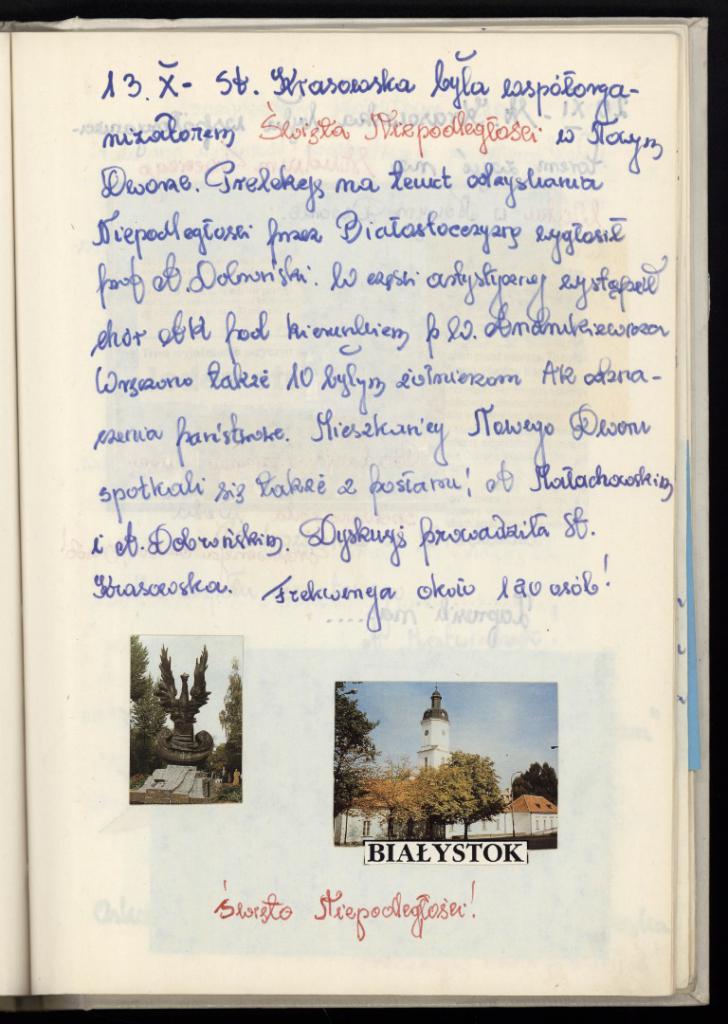 13. X - St. Krasowska była współorga-
nizatorem Święta Niepodległości w Nowym
Dworze. Prelekcję na temat odzyskania
Niepodległości przez Białostocczyznę wygłosił
prof A. Dobroński. W części artystycznej wystąpił
chór AK pod kierunkiem p W.
Wręczono także 10 byłym żołnierzom AK odzna-
czenia państwowe. Mieszkańcy Nowego Dworu
spotkali się także z posłami: A Małachowskim
i A. Dobrońskim. Dyskusję prowadziła St.
Krasowska. Frekwencja około 120 osób!
BIAŁYSTOK
Święto Niepodległości!